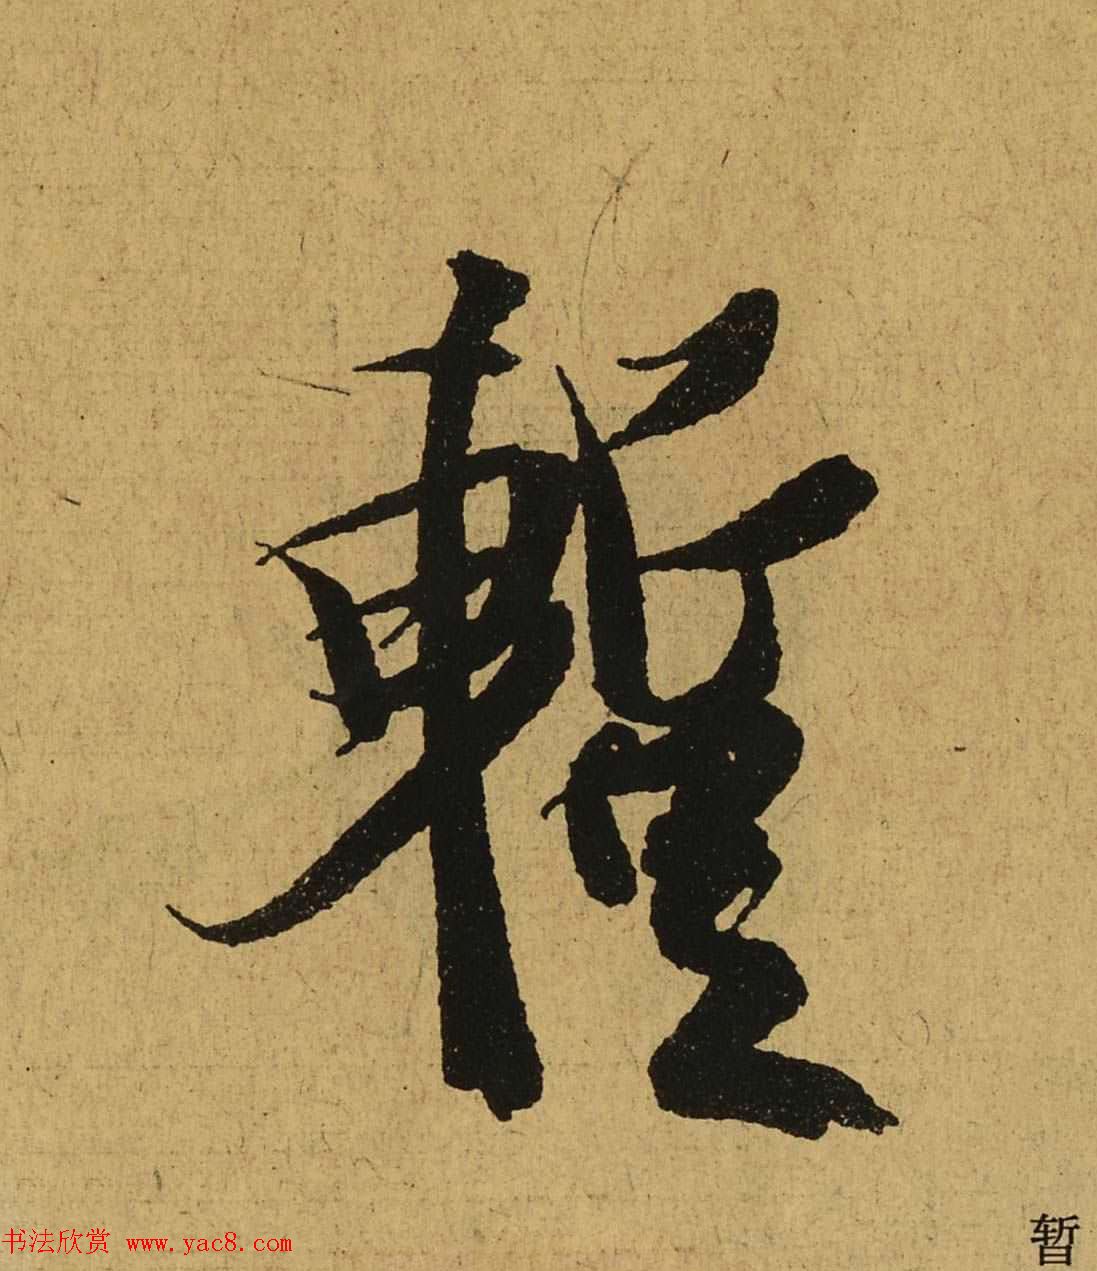 暫
书法欣赏 www.yac8.com
暂